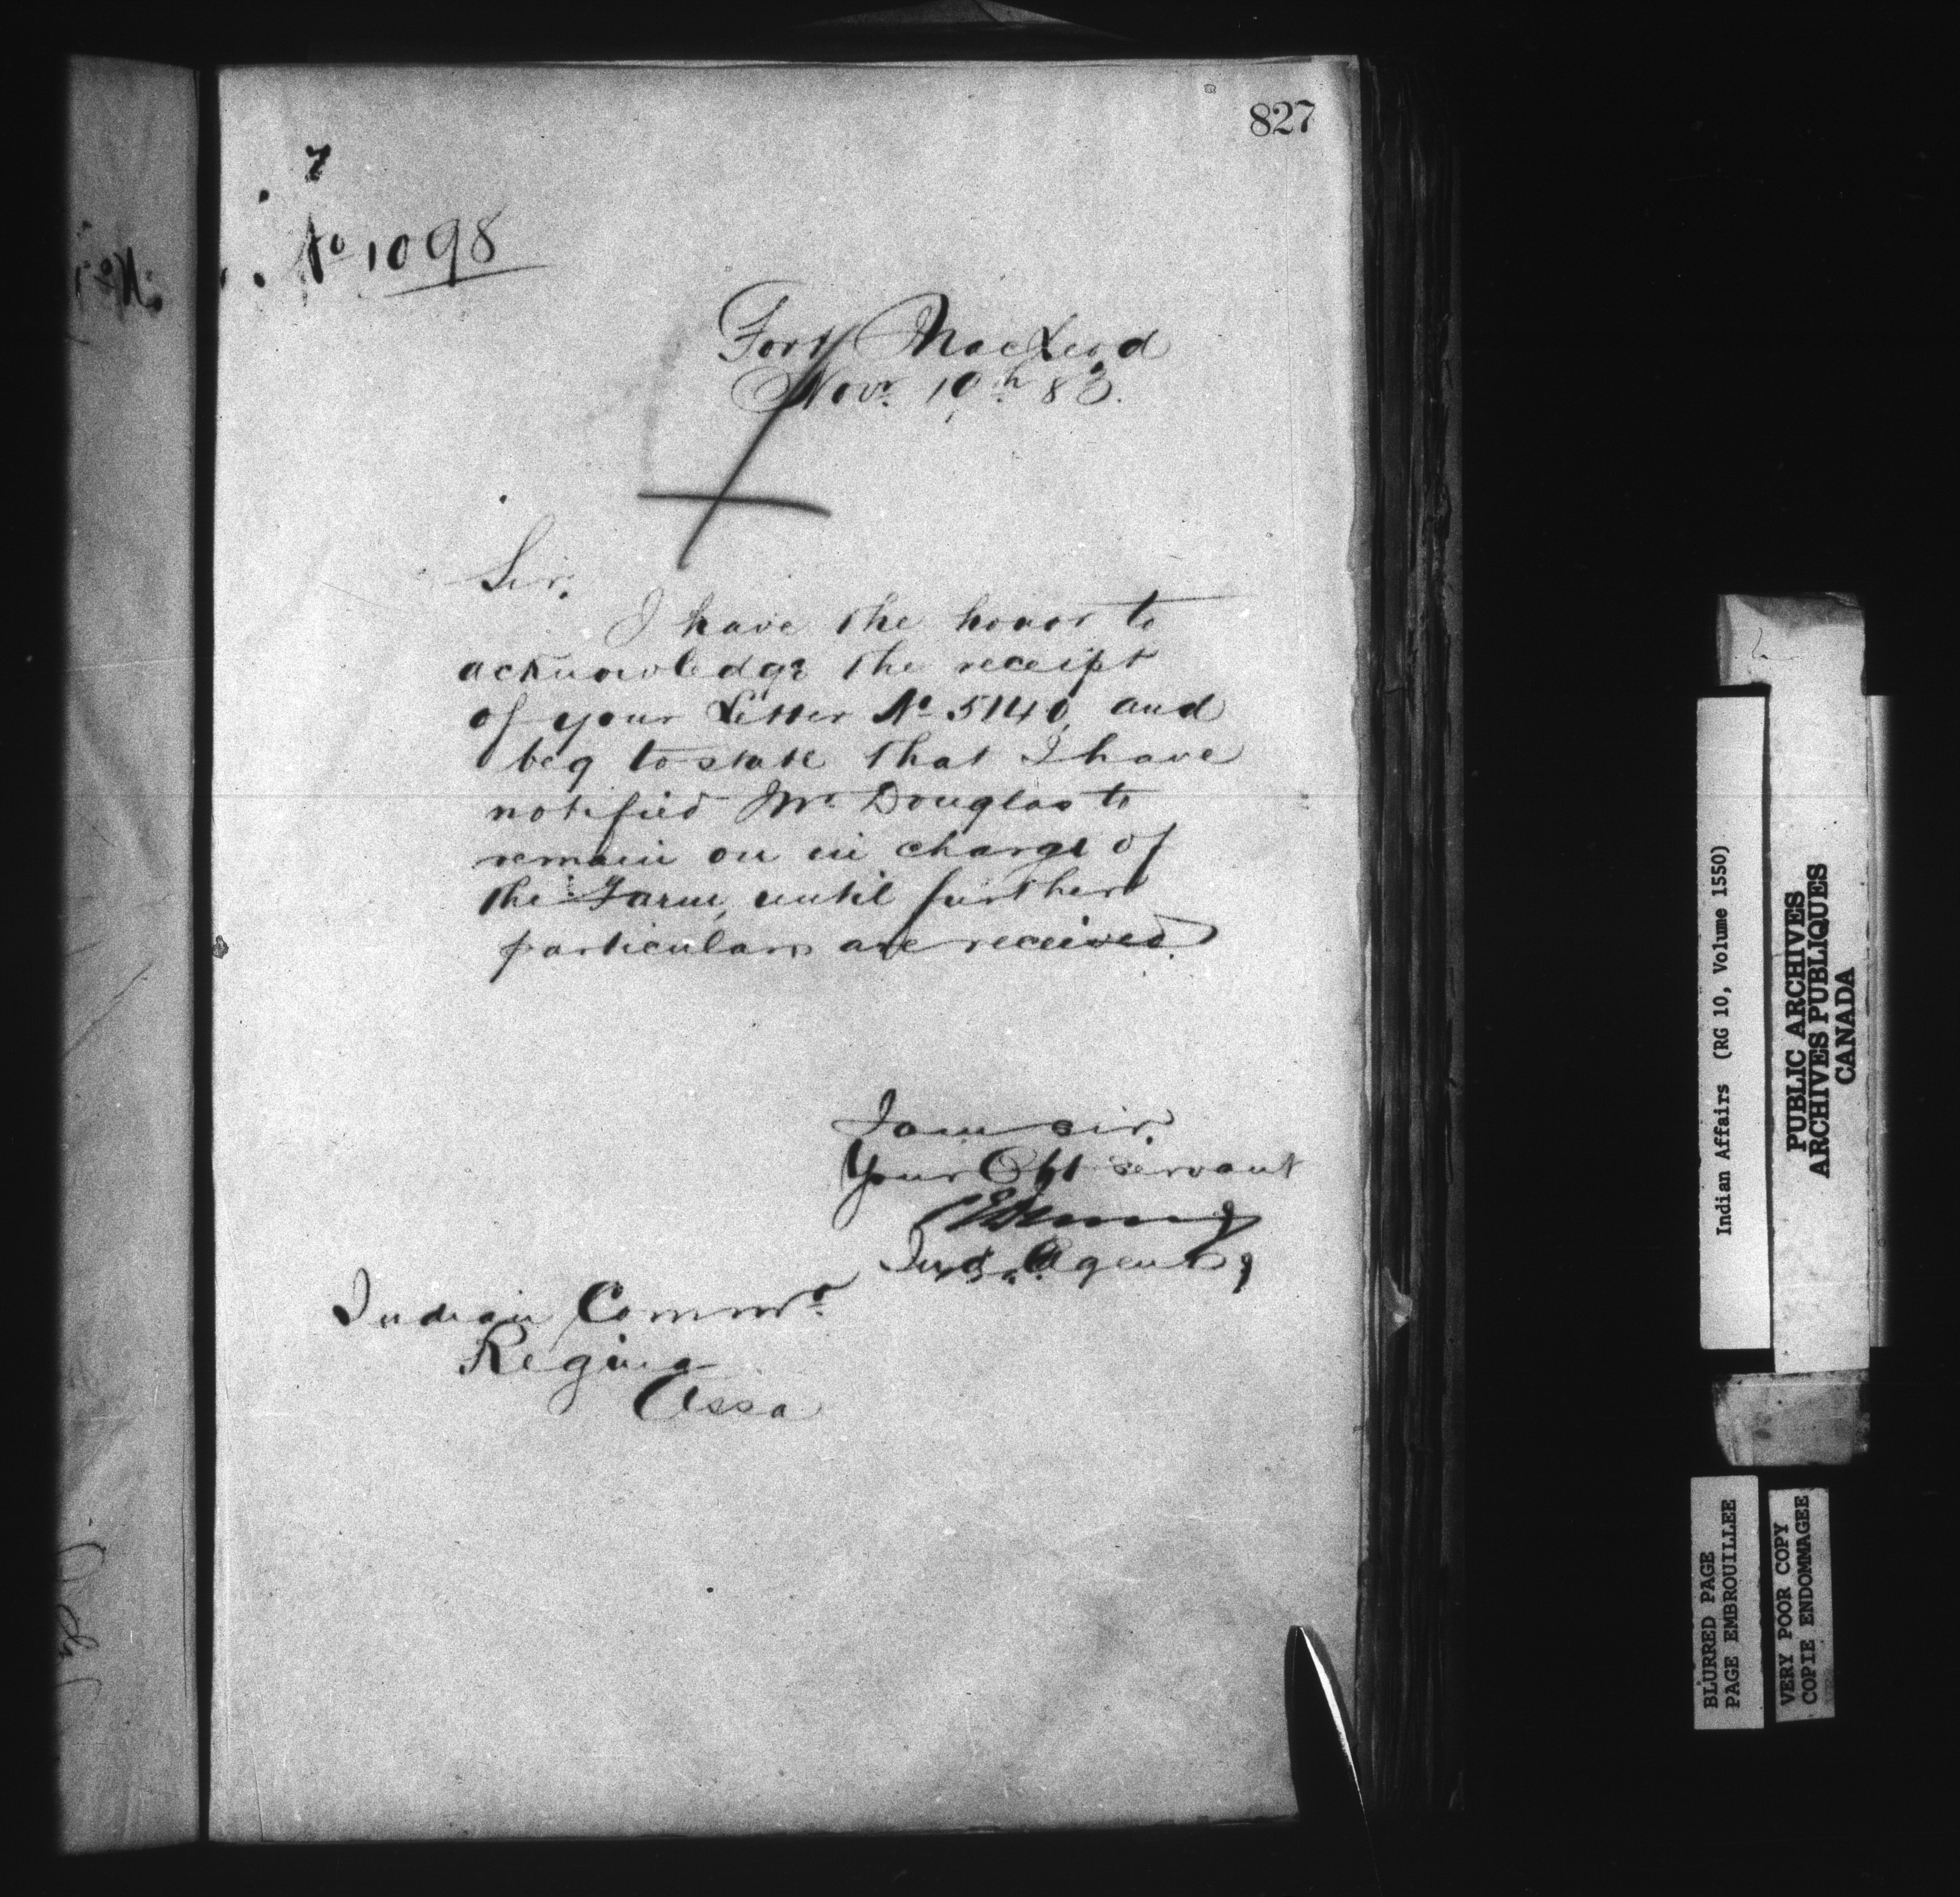 827
7
No 1098
Fort MacLeod
Novr. 10th 83.
Sir,
I have the honor to
acknowledge the receipt
of your Letter No 5140, and
beg to state that I have
notified Mr Douglas to
remain on in charge of
the Farm, until further
particulars are received.
I am sir,
Your Obt servant
Ind. Agent
Indian Commr.
Regina
Assa
Indian Affairs (RG 10, Volume 1550)
PUBLIC ARCHIVES
ARCHIVES PUBLIQUES
CANADA
BLURRED PAGE
PAGE EMBROUILLEE
VERY POOR COPY
COPIE ENDOMMAGEE